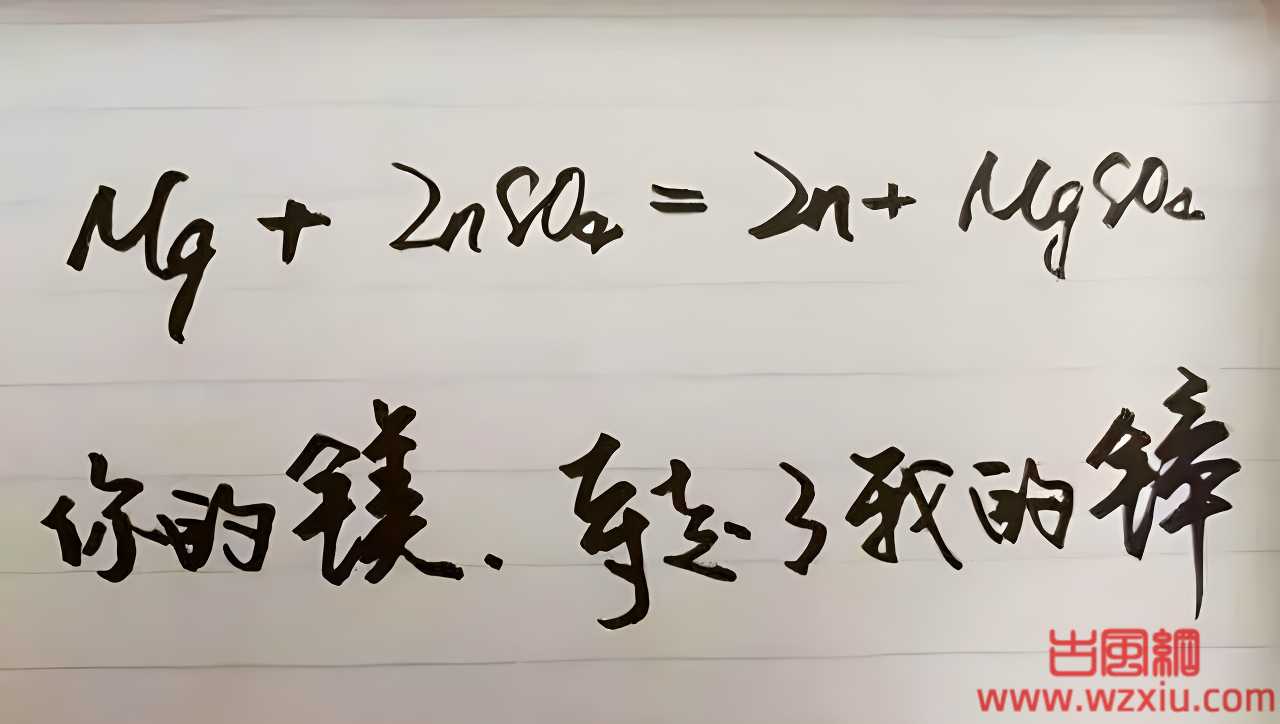 Mg + ZnSO₄ = Zn + MgSO₄
你的镁.夺走了我的锌
古風網
www.wzxiu.com